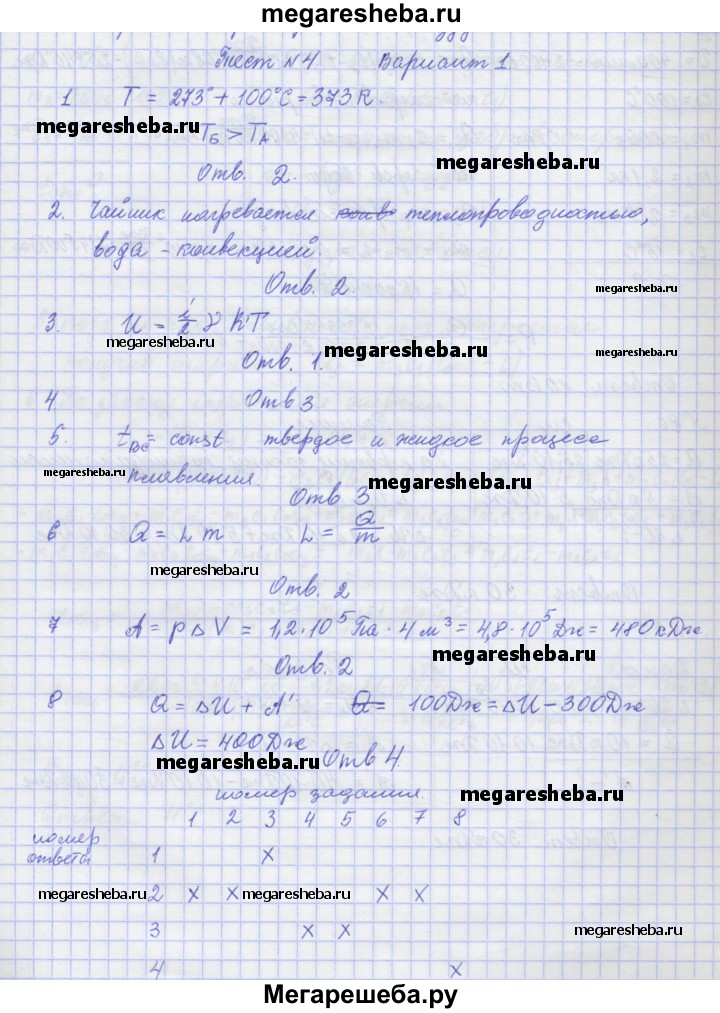 megaresheba.ru
Тест №4 Вариант 1
1 T = 273° + 100°C = 373K.
megaresheba.ru
TБ > TА
megaresheba.ru
Отв. 2.
2. Чайник нагревается теплопроводностью,
вода - конвекцией.
Отв. 2.
megaresheba.ru
3. U = i/2 γ RT
megaresheba.ru
Отв. 1.
megaresheba.ru
megaresheba.ru
4. Отв 3
5. tBC = const. твердое и жидкое процесс
megaresheba.ru
плавления.
megaresheba.ru
Отв 3
6 Q = L m L = Q/m
megaresheba.ru
Отв. 2
7 A = p Δ V = 1,2·10⁵ Па · 4 м³ = 4,8·10⁵ Дж = 480 кДж.
Отв. 2
megaresheba.ru
8 Q = ΔU + A' Q = 100Дж = ΔU - 300Дж
ΔU = 400Дж Отв 4
megaresheba.ru
номер задания.
megaresheba.ru
1 2 3 4 5 6 7 8
номер
ответа 1 x
megaresheba.ru
2 x x x x
megaresheba.ru
3 x x
megaresheba.ru
4 x
Мегарешеба.ру